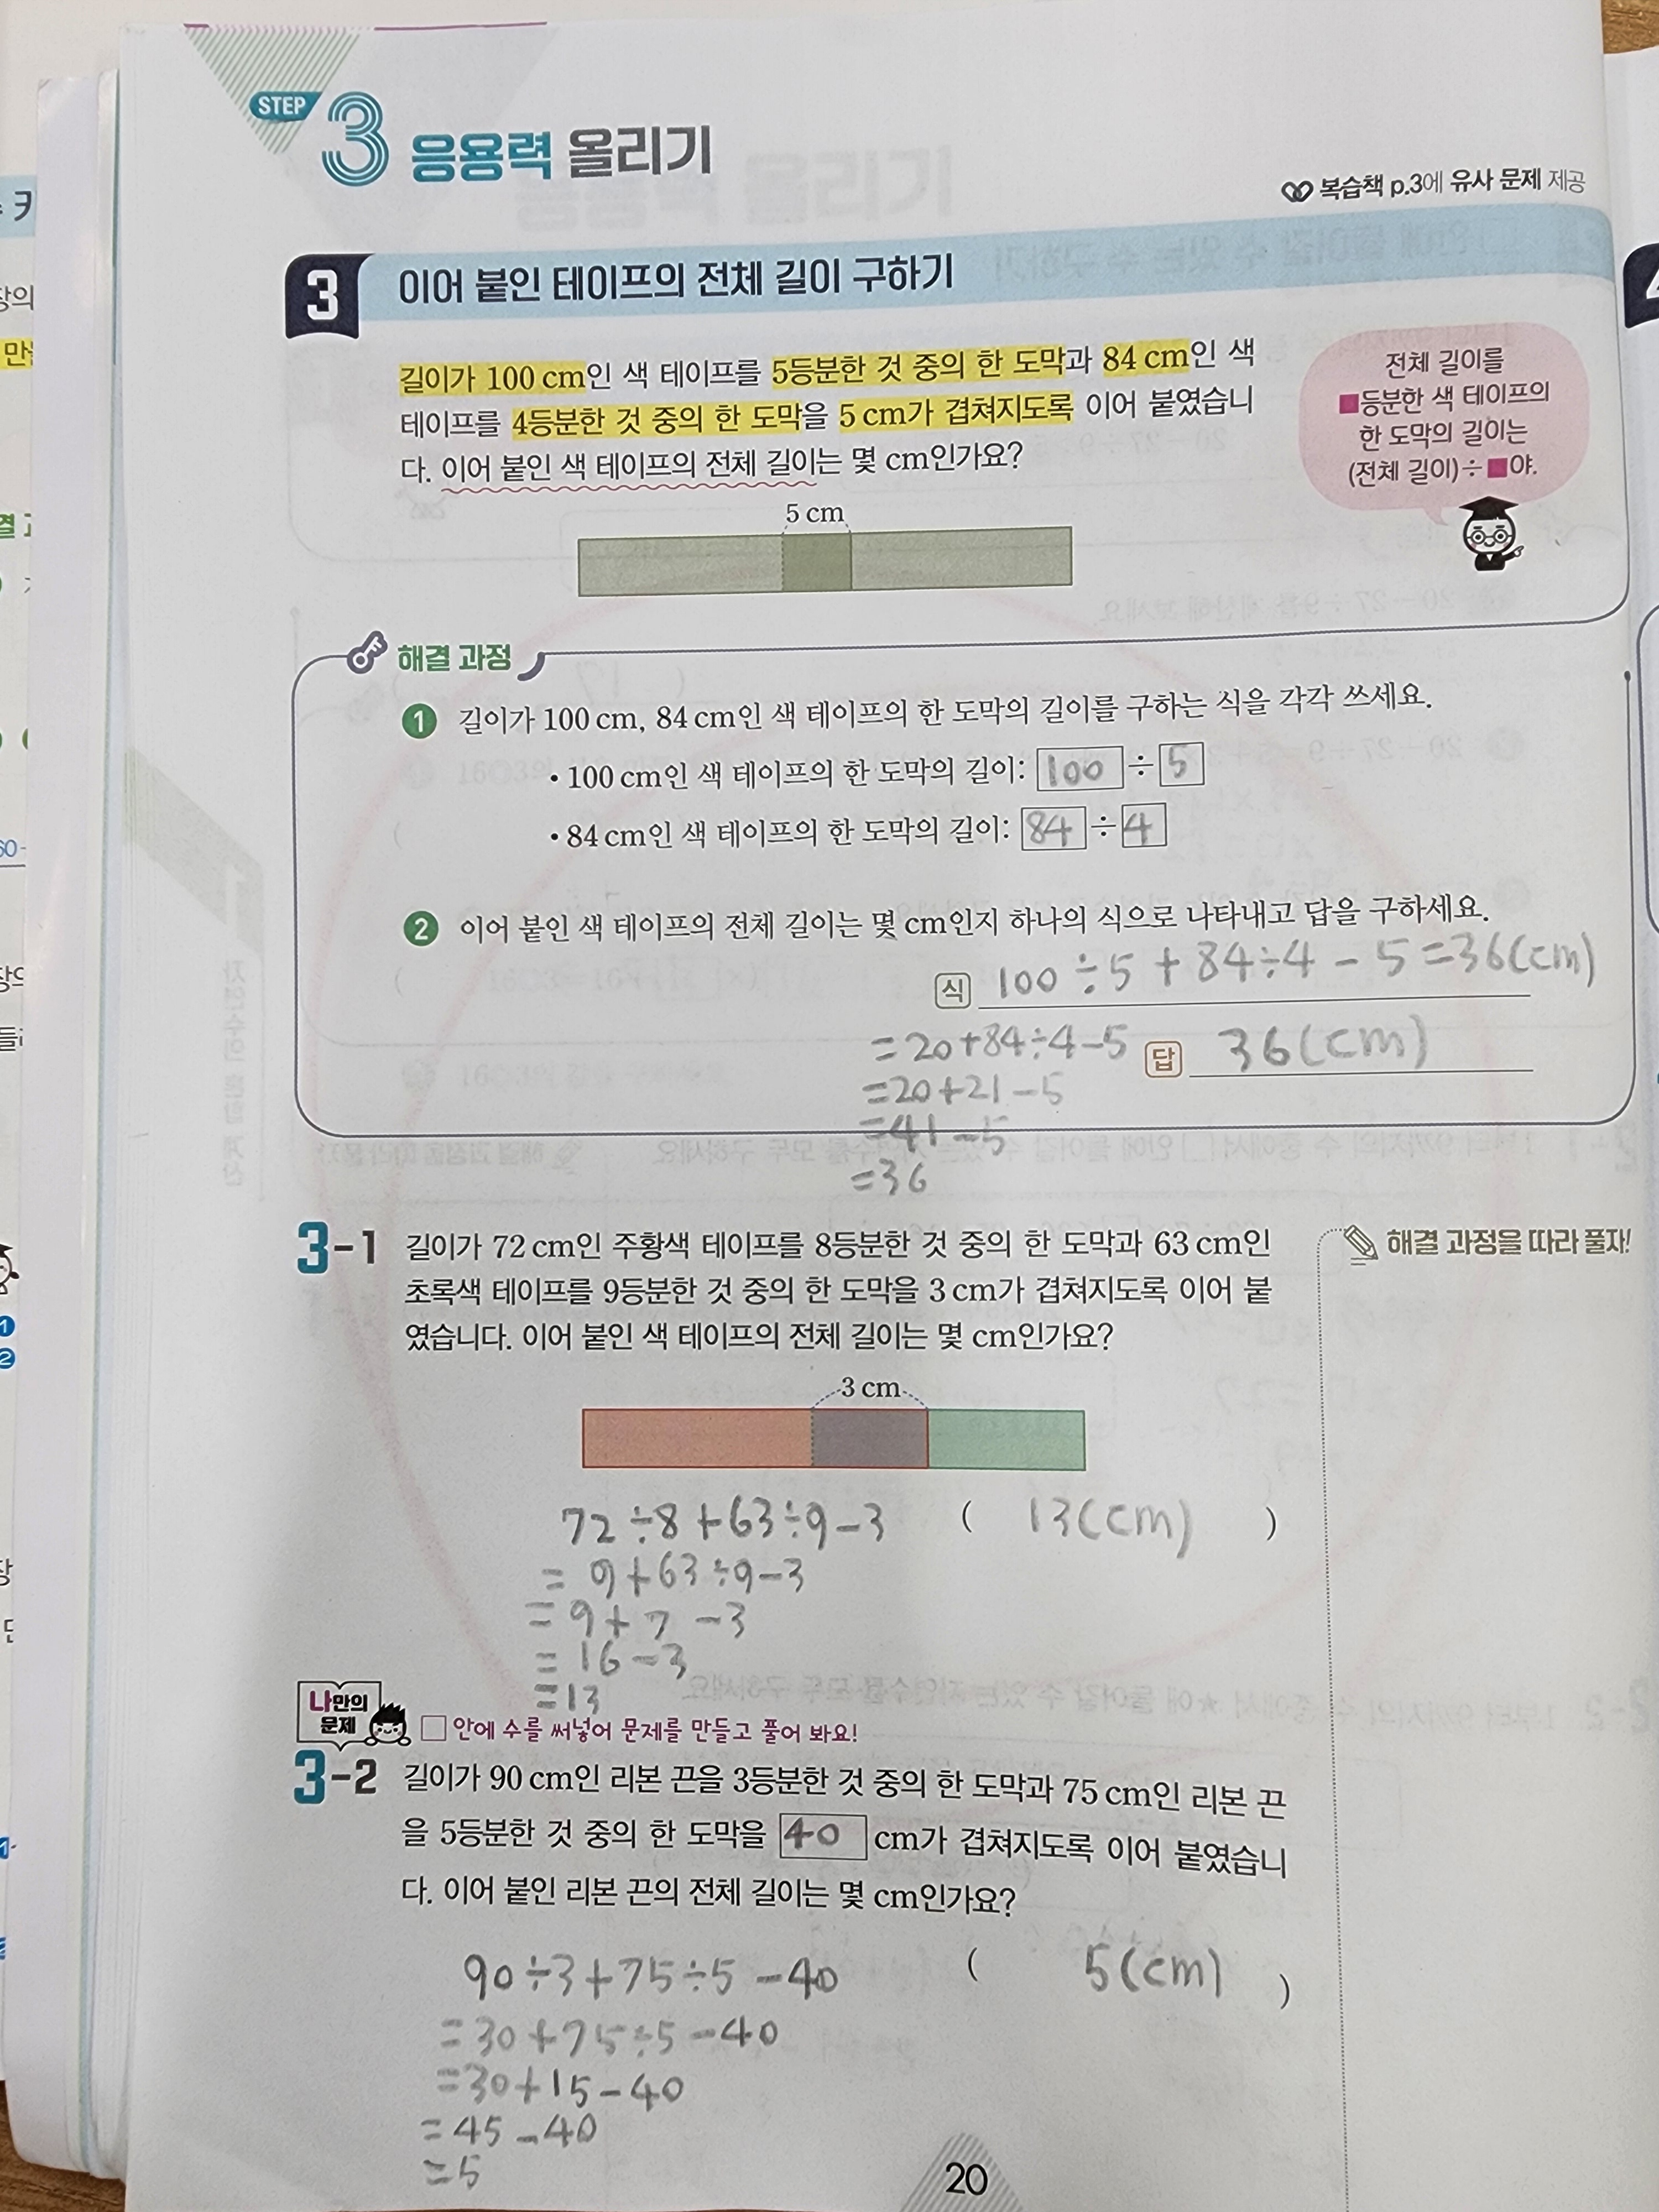 STEP
3 응용력 올리기
복습책 p.3에 유사 문제 제공
3 이어 붙인 테이프의 전체 길이 구하기
길이가 100 cm인 색 테이프를 5등분한 것 중의 한 도막과 84 cm인 색
테이프를 4등분한 것 중의 한 도막을 5 cm가 겹쳐지도록 이어 붙였습니
다. 이어 붙인 색 테이프의 전체 길이는 몇 cm인가요?
전체 길이를
■등분한 색 테이프의
한 도막의 길이는
(전체 길이)÷■야.
5 cm
해결 과정
1 길이가 100 cm, 84 cm인 색 테이프의 한 도막의 길이를 구하는 식을 각각 쓰세요.
• 100 cm인 색 테이프의 한 도막의 길이: 100 ÷ 5
• 84 cm인 색 테이프의 한 도막의 길이: 84 ÷ 4
2 이어 붙인 색 테이프의 전체 길이는 몇 cm인지 하나의 식으로 나타내고 답을 구하세요.
식 100 ÷ 5 + 84 ÷ 4 - 5 = 36(cm)
= 20+84÷4-5
답 36(cm)
=20+21-5
=41-5
=36
3-1 길이가 72 cm인 주황색 테이프를 8등분한 것 중의 한 도막과 63 cm인
초록색 테이프를 9등분한 것 중의 한 도막을 3 cm가 겹쳐지도록 이어 붙
였습니다. 이어 붙인 색 테이프의 전체 길이는 몇 cm인가요?
해결 과정을 따라 풀자!
3 cm
72÷8+63÷9-3 ( 13(cm) )
= 9+63÷9-3
= 9+7-3
= 16-3
=13
나만의
문제
□ 안에 수를 써넣어 문제를 만들고 풀어 봐요!
3-2 길이가 90 cm인 리본 끈을 3등분한 것 중의 한 도막과 75 cm인 리본 끈
을 5등분한 것 중의 한 도막을 40 cm가 겹쳐지도록 이어 붙였습니
다. 이어 붙인 리본 끈의 전체 길이는 몇 cm인가요?
90÷3+75÷5-40 ( 5(cm) )
=30+75÷5-40
=30+15-40
=45-40
=5
20